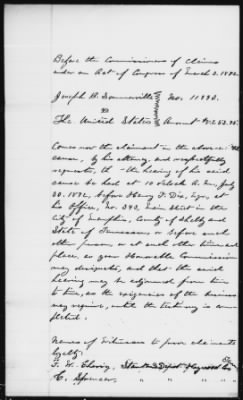 Before the Commissioners of Claims
under an Act of Congress of March 3, 1871.
Joseph H. Sommerville
vs
No. 11893.
The United States
Amount $
Comes now the claimant in the above
cause, by his attorney, and respectfully
requests, th the hearing of his said
cause to be held at 10 o'clock A.M. July
30. 1872, before Henry F. Dix, Esqr. at
his Office, No. 390. Main Street in the
City of Memphis, County of Shelby and
State of Tennessee, or before such
other person or at such other time and
place, as your Honorable Commission
may designate, and that the said
hearing may be adjourned from time
to time, as the exigencies of the business
may require, until the testimony is com-
pleted.
Names of witnesses to prove claimants
loyalty
Depot Haywood Co
C.
" " "